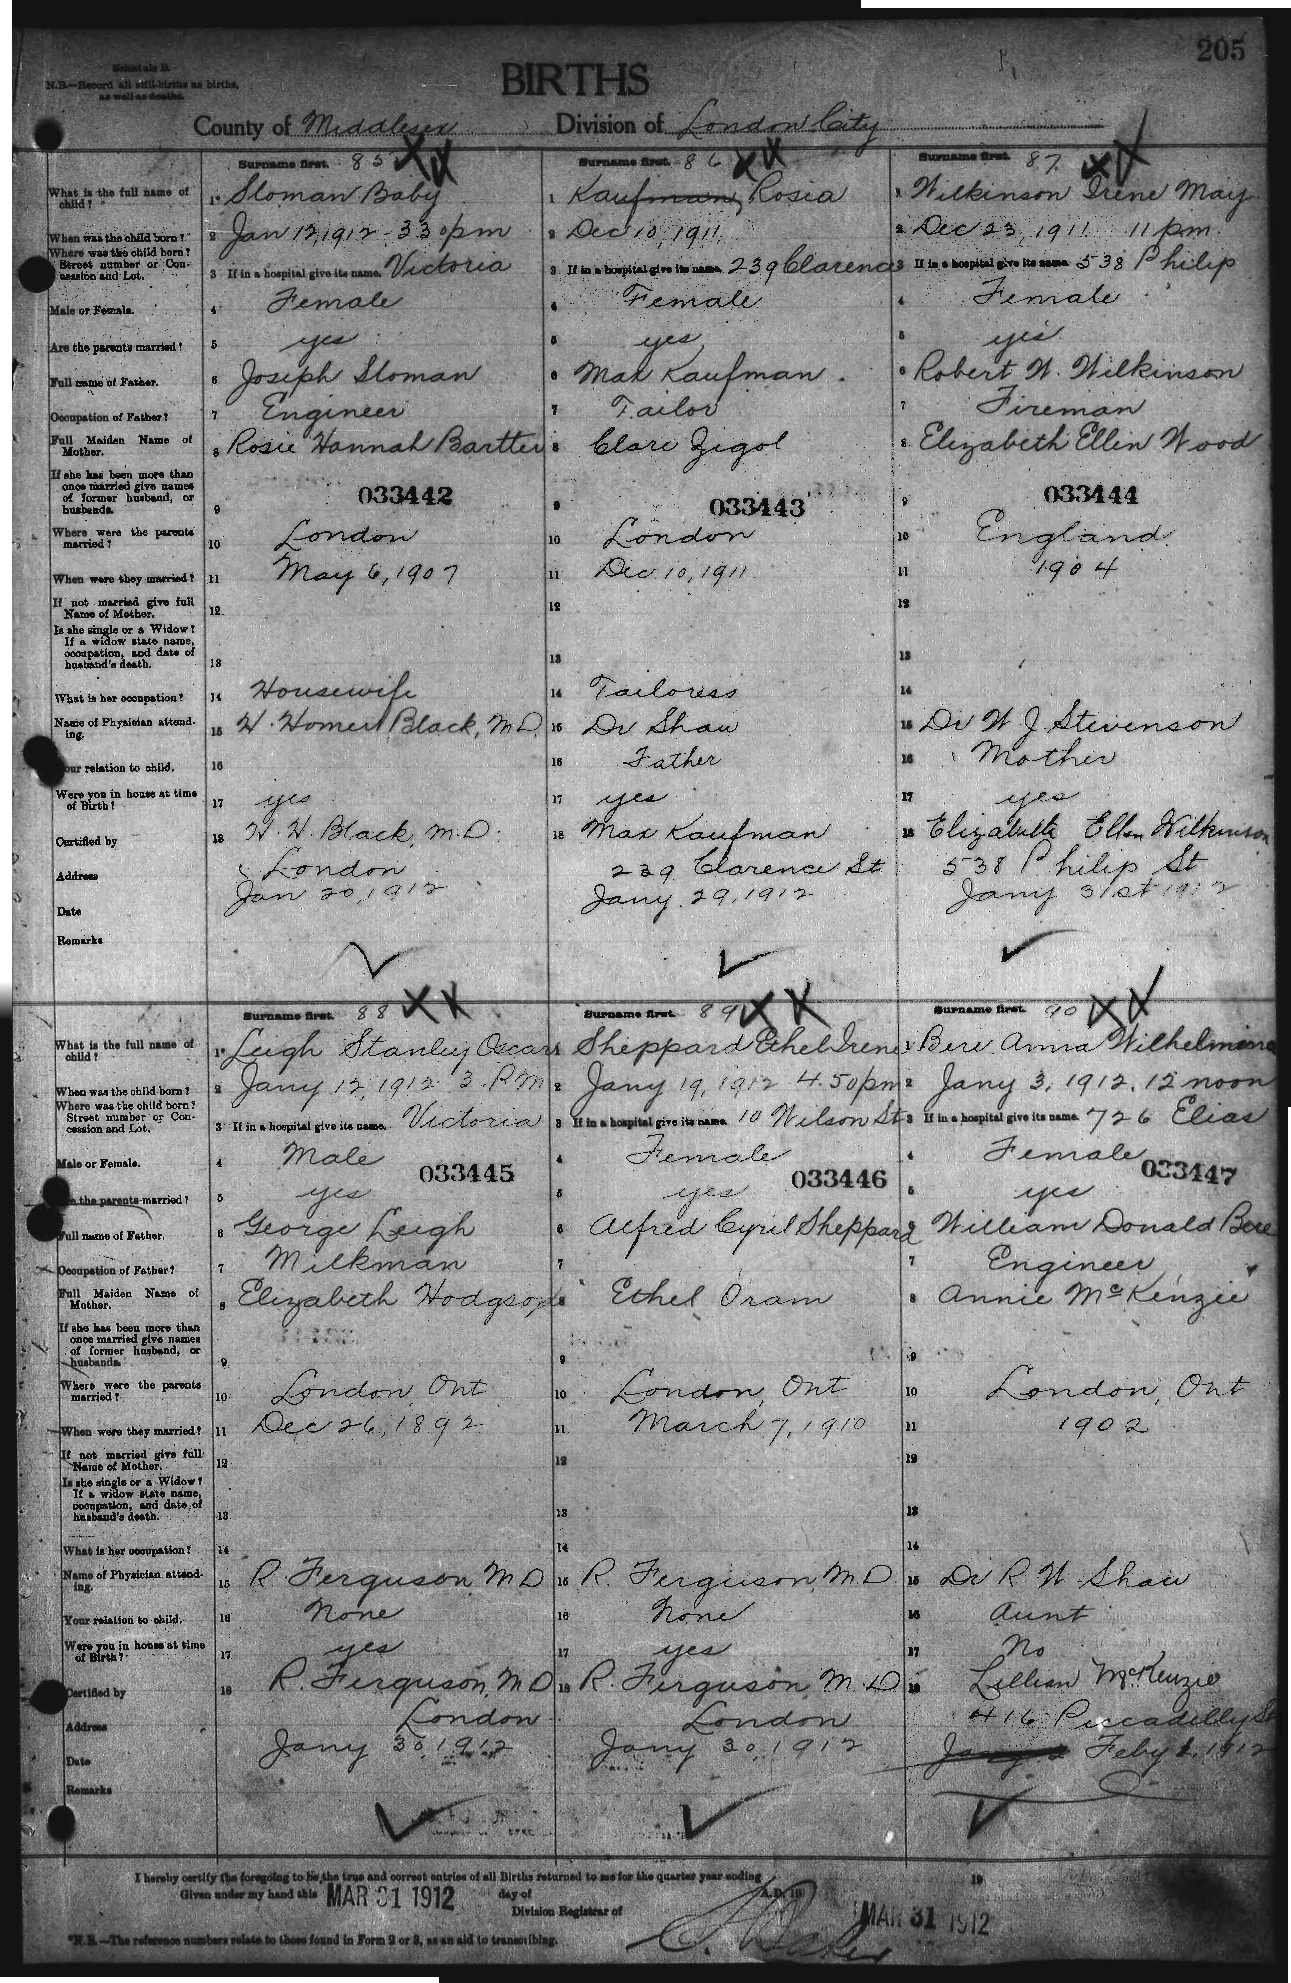 205
Schedule B.
N.B.—Record all still-births as births, as well as deaths.
BIRTHS
County of Middlesex Division of London City
Surname first. 85 Surname first. 86 Surname first. 87
What is the full name of child? 1* Sloman Baby 1 Kaufman, Rosia 1 Wilkinson Irene May
When was the child born? 2 Jan 12, 1912 - 3 30 pm 2 Dec 10, 1911 2 Dec 23, 1911 11 pm
Where was the child born? Street number or Concession and Lot. 3 If in a hospital give its name. Victoria 3 If in a hospital give its name. 239 Clarence 3 If in a hospital give its name. 538 Philip
Male or Female. 4 Female 4 Female 4 Female
Are the parents married? 5 yes 5 yes 5 yes
Full name of Father. 6 Joseph Sloman 6 Max Kaufman 6 Robert W. Wilkinson
Occupation of Father? 7 Engineer 7 Tailor 7 Fireman
Full Maiden Name of Mother. 8 Rosie Hannah Bartter 8 Clare Zigol 8 Elizabeth Ellen Wood
If she has been more than once married give names of former husband, or husbands. 9 033442 9 033443 9 033444
Where were the parents married? 10 London 10 London 10 England
When were they married? 11 May 6, 1907 11 Dec 10, 1911 11 1904
If not married give full Name of Mother. 12 12 12
Is she single or a Widow? If a widow state name, occupation, and date of husband's death. 13 13 13
What is her occupation? 14 Housewife 14 Tailoress 14
Name of Physician attending. 15 H. Homer Black, M D. 15 Dr Shaw 15 Dr W J Stevenson
Your relation to child. 16 16 Father 16 Mother
Were you in house at time of Birth? 17 yes 17 yes 17 yes
Certified by 18 H. H. Black, M. D. 18 Max Kaufman 18 Elizabeth Ellen Wilkinson
Address London 239 Clarence St 538 Philip St
Date Jan 20, 1912 Jany 29, 1912 Jany 31st 1912
Remarks
Surname first. 88 Surname first. 89 Surname first. 90
What is the full name of child? 1* Leigh Stanley Oscar 1 Sheppard Ethel Irene 1 Bere Anna Wilhelmina
When was the child born? 2 Jany 12, 1912 3 P.M 2 Jany 19, 1912 4.50 pm 2 Jany 3, 1912. 12 noon
Where was the child born? Street number or Concession and Lot. 3 If in a hospital give its name. Victoria 3 If in a hospital give its name. 10 Wilson St 3 If in a hospital give its name. 726 Elias
Male or Female. 4 Male 033445 4 Female 033446 4 Female 033447
Are the parents married? 5 yes 5 yes 5 yes
Full name of Father. 6 George Leigh 6 Alfred Cyril Sheppard 6 William Donald Bere
Occupation of Father? 7 Milkman 7 7 Engineer
Full Maiden Name of Mother. 8 Elizabeth Hodgson 8 Ethel Oram 8 Annie McKenzie
If she has been more than once married give names of former husband, or husbands. 9 9 9
Where were the parents married? 10 London, Ont 10 London, Ont 10 London, Ont
When were they married? 11 Dec 26, 1892 11 March 7, 1910 11 1902
If not married give full Name of Mother. 12 12 12
Is she single or a Widow? If a widow state name, occupation, and date of husband's death. 13 13 13
What is her occupation? 14 14 14
Name of Physician attending. 15 R. Ferguson, M D 15 R. Ferguson, M. D. 15 Dr R W Shaw
Your relation to child. 16 None 16 None 16 Aunt
Were you in house at time of Birth? 17 yes 17 yes 17 No
Certified by 18 R. Ferguson, M D 18 R. Ferguson, M. D. 18 Lillian McKenzie
Address London London 416 Piccadilly St
Date Jany 30, 1912 Jany 30, 1912 Feby 1, 1912
Remarks
I hereby certify the foregoing to be the true and correct entries of all Births returned to me for the quarter year ending 19
Given under my hand this MAR 31 1912 day of A.D. 19 MAR 31 1912
Division Registrar of
*N.B.—The reference numbers relate to those found in Form 2 or 3, as an aid to transcribing.